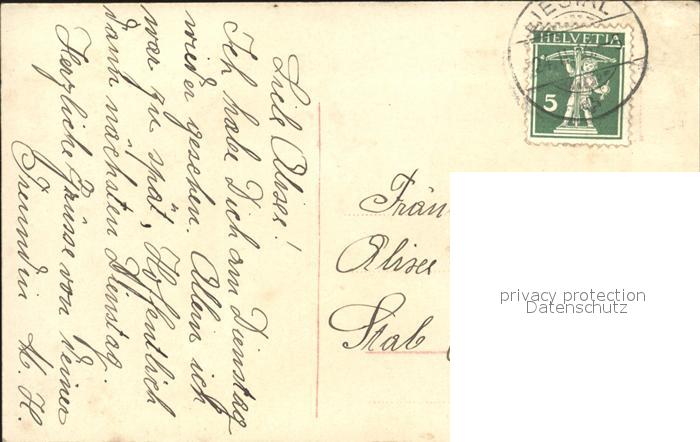 Liebe Alisee!
Ich habe Dich am Dienstag
wieder gesehen. Allein ich
war zu spät, Hoffentlich
dann nächsten Dienstag.
Herzliche Grüsse von Deiner
Freundin M. H.
LIESTAL
HELVETIA
5
Fräu
Alisee
Stab
privacy protection
Datenschutz